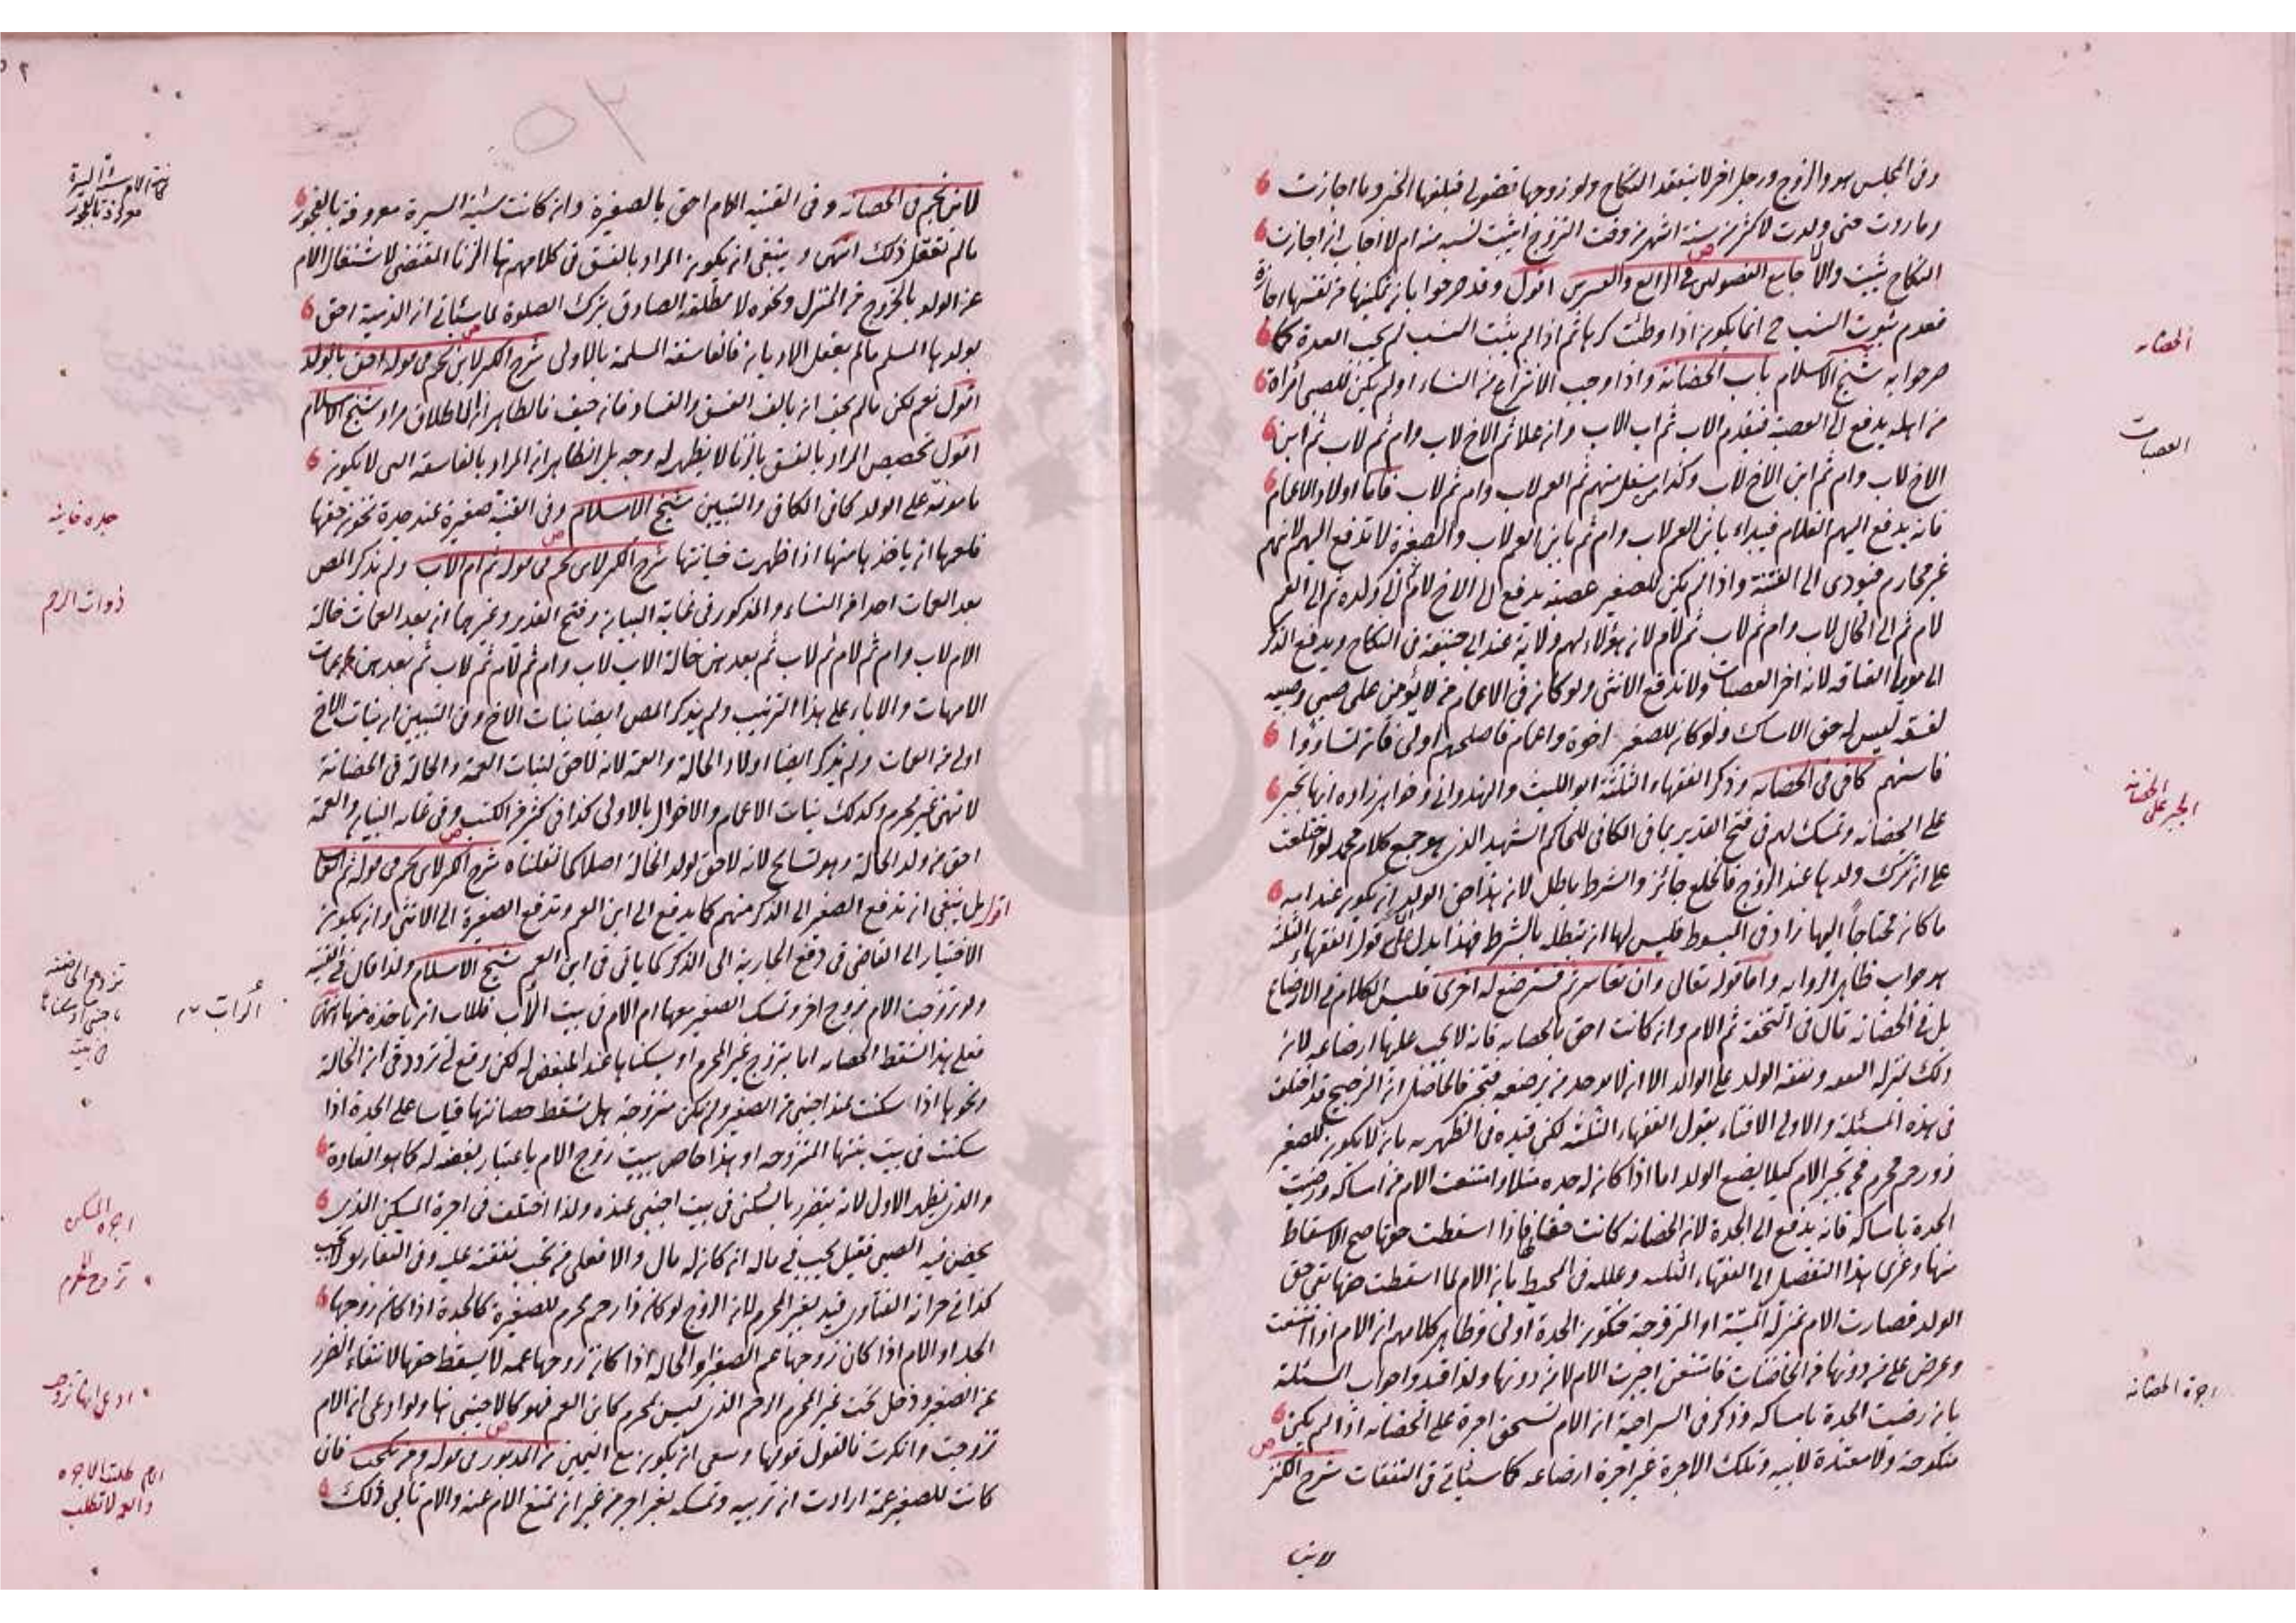 وفى المجلس هو والزوج ورجل اخر لا ينعقد النكاح ولو زوجها فضولى فبلغها الخبر وما اجازت
وما ردت حتى ولدت لاكثر من ستة اشهر من وقت التزوج ايثبت نسبه منه ام لا اجاب ان اجازت
النكاح يثبت والا لا جامع الفصولين فى الرابع والعشرين اقول وقد صرحوا بان تمكينها من نفسها اجازة
فعدم ثبوت النسب ح انما يكون اذا وطئت كرها ثم اذا لم يثبت النسب لم يجب العدة كما
صرحوا به شيخ الاسلام باب الحضانة واذا وجب الانتزاع من النساء او لم يكن للصبى امراة
من اهله يدفع الى العصبة فيقدم الاب ثم اب الاب وان علا ثم الاخ لاب وام ثم لاب ثم ابن
الاخ لاب وام ثم ابن الاخ لاب وكذا من سفل منهم ثم العم لاب وام ثم لاب فاما اولاد الاعمام
فانه يدفع اليهم الغلام فيبداء بابن العم لاب وام ثم بابن العم لاب والصغيرة لا تدفع اليهم لانهم
غير محارم فيودى الى الفتنة واذا لم يكن للصغير عصبة يدفع الى الاخ لام ثم الى ولده ثم الى العم
لام ثم الى الخال لاب وام ثم لاب ثم لام لان هؤلاء لهم ولاية عند ابى حنيفة فى النكاح ويدفع الذكر
الى مولى العتاقه لانه اخر العصبات ولا تدفع الانثى ولو كان فى الاعمام من لا يؤمن على صبى وصبيه
لفسقه ليس له حق الامساك ولو كان للصغير اخوة واعمام فاصلحهم اولى فان تساووا
فاسنهم كافى فى الحضانه وذكر الفقهاء الثلثة ابو الليث والهندوانى وخواهر زاده انها تجبر
على الحضانه وتمسك لهم فى فتح القدير بما فى الكافى للحاكم الشهيد الذى هو جمع كلام محمد لو اختلعت
على ان تترك ولدها عند الزوج فالخلع جائز والشرط باطل لان هذا حق الولد ان يكون عند امه
ما كان محتاجا اليها زاد فى المبسوط فليس لها ان تبطله بالشرط فهذا يدل على ان قول الفقهاء الثلثة
هو جواب ظاهر الروايه واما قوله تعالى وان تعاسرتم فسترضع له اخرى فليس الكلام فى الارضاع
بل فى الحضانه قال فى التحفة ثم الام وان كانت احق بالحضانه فانه لا يجب عليها ارضاعه لان
ذلك بمنزله النفقه ونفقة الولد على الوالد الا ان لا يوجد من يرضعه فتجبر فالحاصل ان الترجيح قد اختلف
فى هذه المسئلة والاولى الافتاء بقول الفقهاء الثلثة لكن قيده فى الظهيريه بان لا يكون للصغير
ذو رحم محرم فح تجبر الام كيلا يضيع الولد اما اذا كان له جده مثلا وامتنعت الام من امساكه ورضيت
الجدة بامساكه فانه يدفع الى الجدة لان الحضانه كانت حقا لها فاذا اسقطت حقها صح الاسقاط
منها وعزى هذا التفصيل الى الفقهاء الثلثه وعلله فى المحيط بان الام لما اسقطت حقها بقى حق
الولد فصارت الام بمنزلة الميتة او المتزوجة فتكون الجدة اولى وظاهر كلامهم ان الام اذا امتنعت
وعرض على من دونها من الحاضنات فامتنعن اجبرت الام لا من دونها ولذا قيدوا جواب المسئلة
بان رضيت الجدة بامساكه وذكر فى السراجية ان الام تستحق اجرة على الحضانه اذا لم يكن
منكوحة ولا معتدة لابيه وتلك الاجرة غير اجرة ارضاعه كما سيأتى فى النفقات شرح الكنز
لابن
الحضانه
العصبات
الجبر على الحضانه
اجرة الحضانه
لابن نجيم فى الحضانه وفى القنيه الام احق بالصغيرة وان كانت سيئة السيرة معروفة بالفجور
ما لم تعقل ذلك انتهى وينبغى ان يكون المراد بالفسق فى كلامهم هنا الزنا المقتضى لاشتغال الام
عن الولد بالخروج من المنزل ونحوه لا مطلقه الصادق بترك الصلوة لما سيأتى ان الذمية احق
بولدها المسلم ما لم يعقل الاديان فالفاسقة المسلمة بالاولى شرح الكنز لابن نجيم فى قوله احق بالولد
اقول نعم لكن ما لم يخف ان يالف الفسق والفساد فان خيف فالظاهر ان الاطلاق مراد شيخ الاسلام
اقول تخصيص المراد بالفسق بالزنا لا يظهر له وجه بل الظاهر ان المراد بالفاسقة التى لا يكون
مامونة على الولد كما فى الكافى والتبيين شيخ الاسلام وفى القنية صغيرة عند جدة تخون حقها
فلعمها ان ياخذها منها اذا ظهرت خيانتها شرح الكنز لابن نجيم فى قوله ثم ام الاب ولم يذكر المص
بعد العمات احدا من النساء والمذكور فى غاية البيان وفتح القدير وغيرهما ان بعد العمات خالة
الام لاب وام ثم لام ثم لاب ثم بعدهن خالة الاب لاب وام ثم لام ثم لاب ثم بعدهن عمات
الامهات والاباء على هذا الترتيب ولم يذكر المص ايضا بنات الاخ وفى التبيين ان بنات الاخ
اولى من العمات ولم يذكر ايضا اولاد الخالة والعمه لانه لا حق لبنات العمة والخالة فى الحضانة
لانهن غير محرم وكذلك بنات الاعمام والاخوال بالاولى كذا فى كثير من الكتب وفى غايه البيان والعمة
احق من ولد الخالة وهو تسامح لانه لا حق لولد الخالة اصلا كما نقلناه شرح الكنز لابن نجيم فى قوله ثم العمات
اقول بل ينبغى ان تدفع الصغير الى الذكر منهم كما يدفع الى ابن العم وتدفع الصغيرة الى الانثى وان يكون
الاختيار الى القاضى فى دفع الجارية الى الذكر كما ياتى فى ابن العم شيخ الاسلام ولذا قال فى القنيه
ولو تزوجت الام بزوج اخر وتمسك الصغير معها ام الام فى بيت الأب فللاب ان ياخذه منها انتهى
فعلى هذا تسقط الحضانه اما بتزوج غير المحرم او بسكناها عند المبغض له لكن وقع لى تردد فى ان الخالة
ونحوها اذا سكنت عند اجنبى من الصغير ولم يكن متزوجة هل تسقط حضانتها قياسا على الجدة اذا
سكنت فى بيت بنتها المتزوجه او هذا خاص ببيت زوج الام باعتبار بغضه له كما هو العادة
والذى يظهر الاول لانه يتضرر بالسكنى فى بيت اجنبى عنده ولذا اختلف فى اجرة المسكن الذى
يحضن فيه الصبى فقيل يجب فى ماله ان كان له مال والا فعلى من تجب نفقته عليه وفى التفاريق لا تجب
كذا فى خزانة الفتاوى قيد بغير المحرم لان الزوج لو كان ذا رحم محرم للصغيرة كالجدة اذا كان زوجها
الجد او الام اذا كان زوجها عم الصغير او الخاله اذا كان زوجها عمه لا يسقط حقها لانتفاء الضرر
عن الصغير ودخل تحت غير المحرم الرحم الذى ليس بمحرم كابن العم فهو كالاجنبى هنا ولو ادعى ان الام
تزوجت وانكرت فالقول قولها وينبغى ان يكون مع اليمين من المذبور فى قوله ومن نكحت فان
كانت للصغير عمة ارادت ان تربيه وتمسكه بغير اجر من غير ان تمنع الام عنه والام تأبى ذلك
جده خاينه
ذوات الرحم
اجرة المسكن
تزوج المحرم
ادعى انها تزوجت
الام طلبت الاجره
والعمه لا تطلب